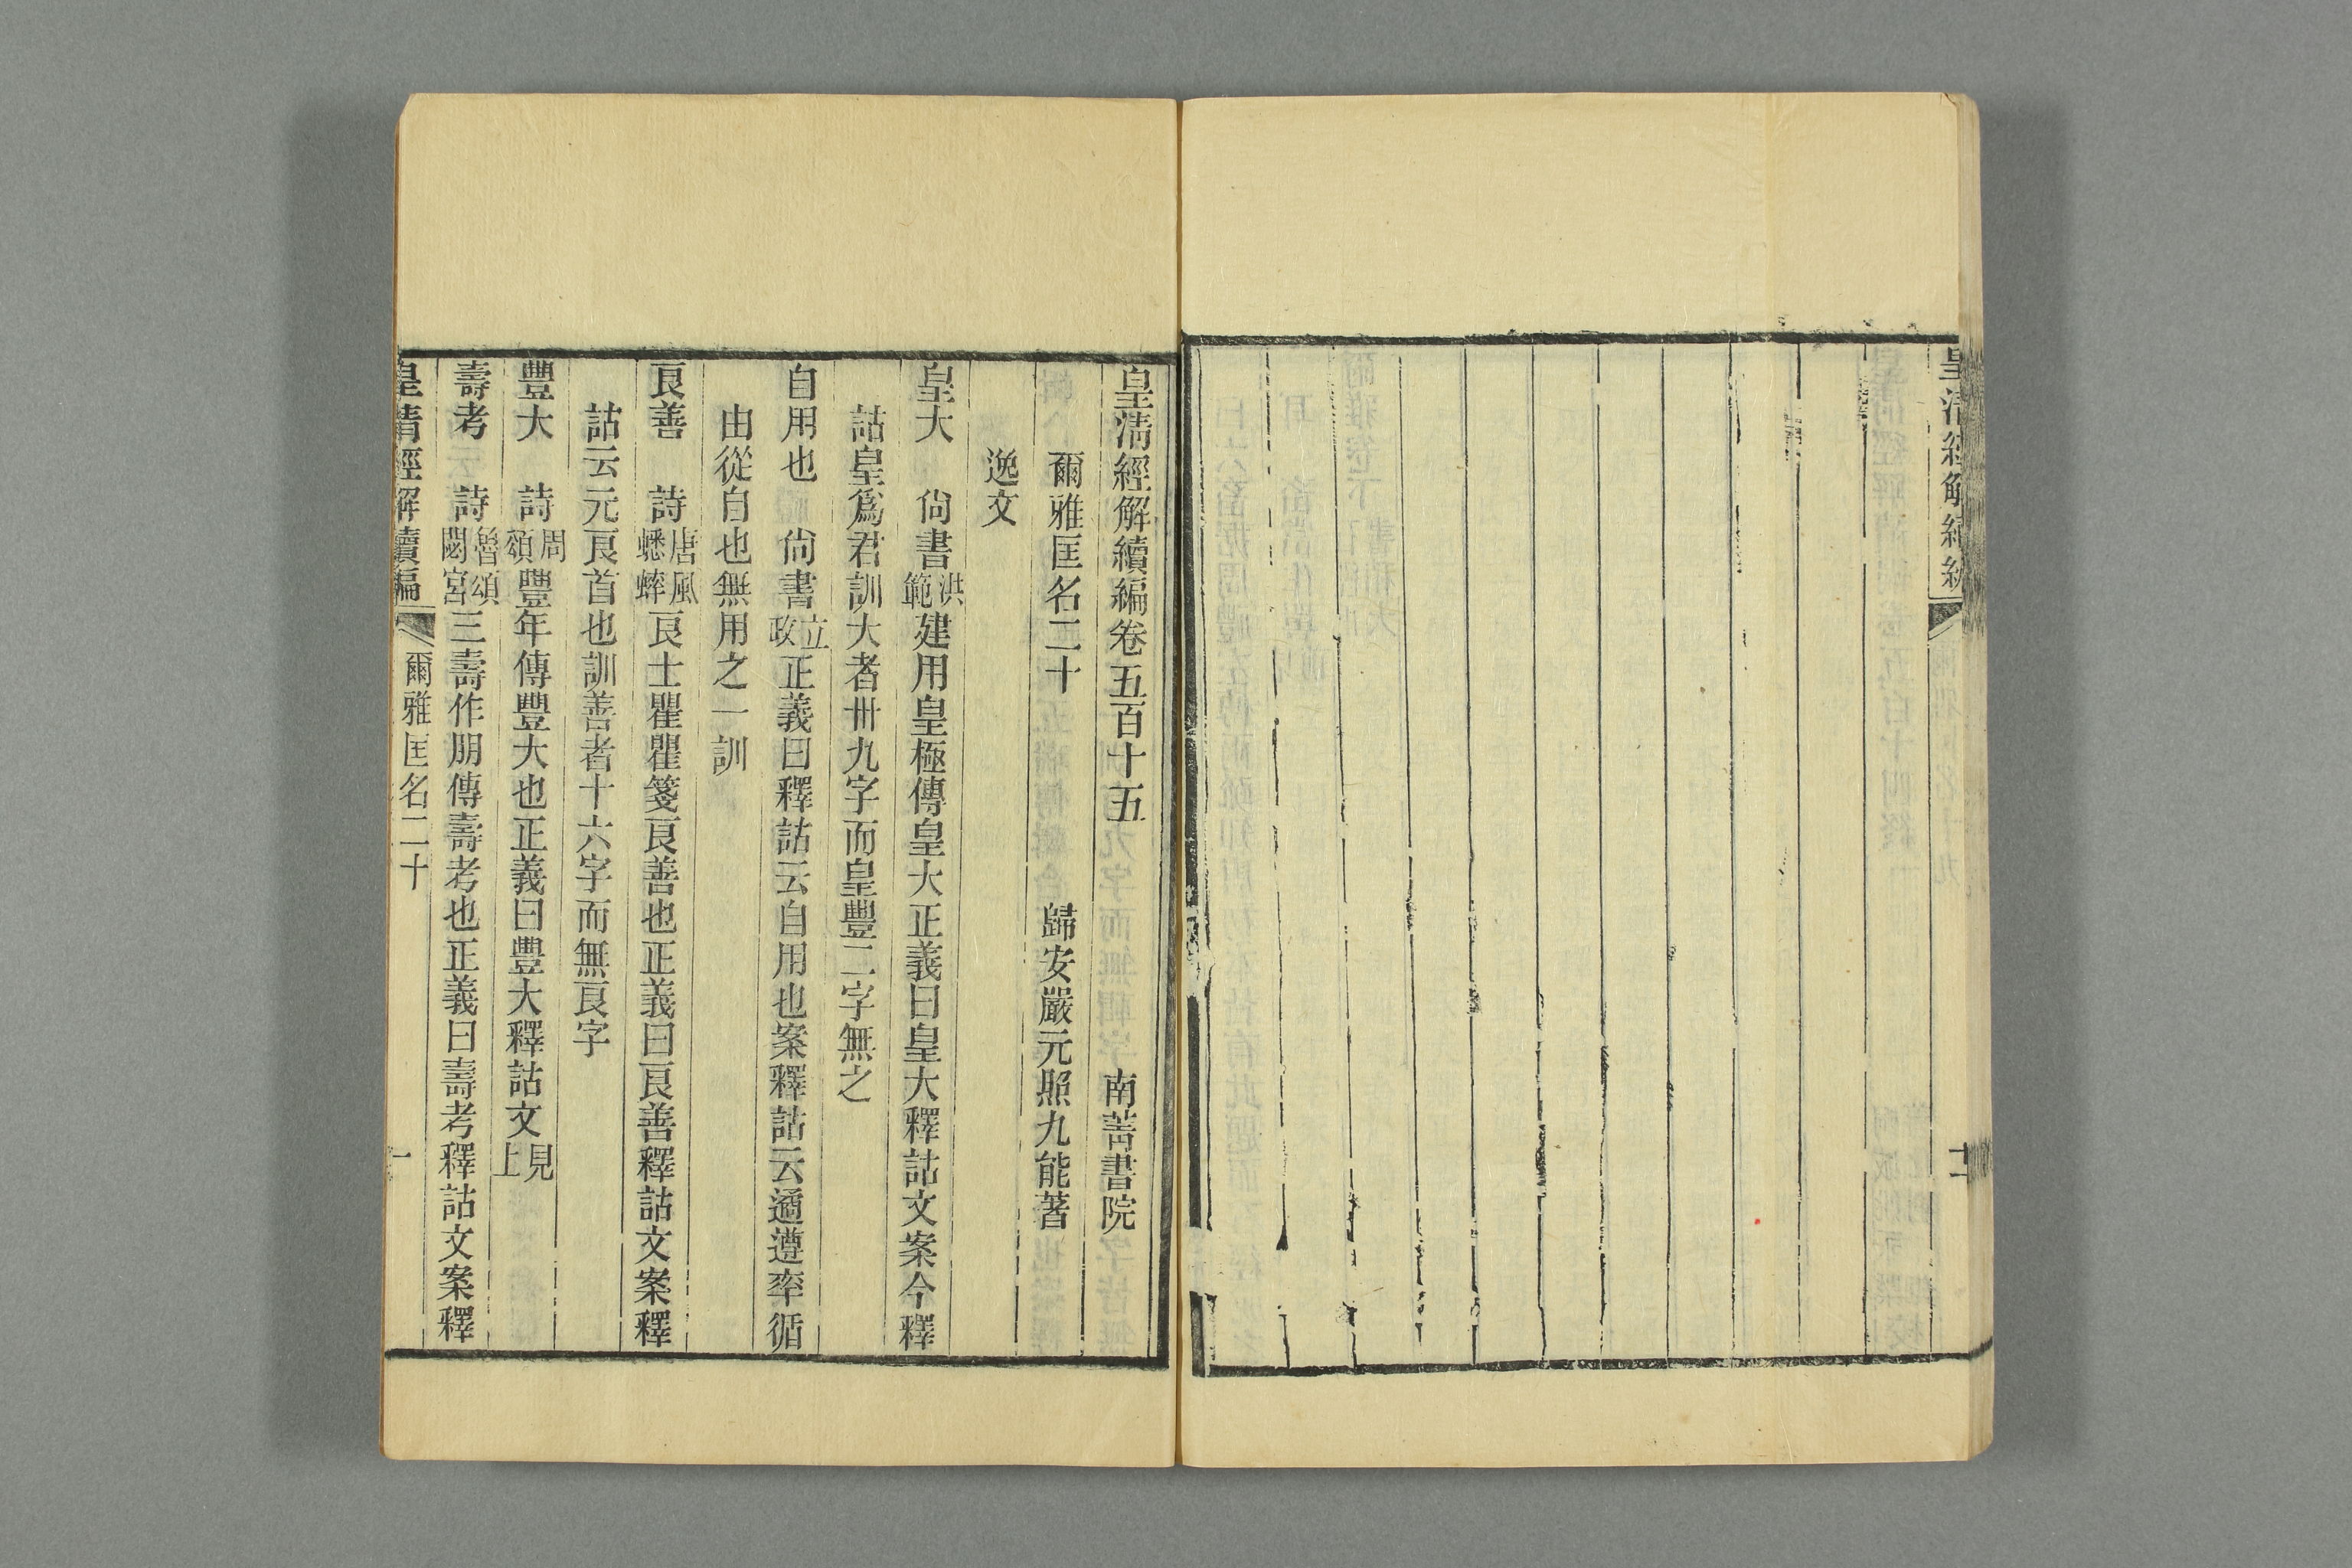 皇清經解續編
十二
皇清經解續編卷五百十五 南菁書院
爾雅匡名二十 歸安嚴元照九能著
逸文
皇大 尙書洪範建用皇極傳皇大正義曰皇大釋詁文案今釋
詁皇爲君訓大者卅九字而皇豐二字無之
自用也 尙書立政正義曰釋詁云自用也案釋詁云遹遵率循
由從自也無用之一訓
良善 詩唐風蟋蟀良士瞿瞿箋良善也正義曰良善釋詁文案釋
詁云元良首也訓善者十六字而無良字
豐大 詩周頌豐年傳豐大也正義曰豐大釋詁文見上
壽考 詩魯頌閟宮三壽作朋傳壽考也正義曰壽考釋詁文案釋
皇清經解續編 爾雅匡名二十 一